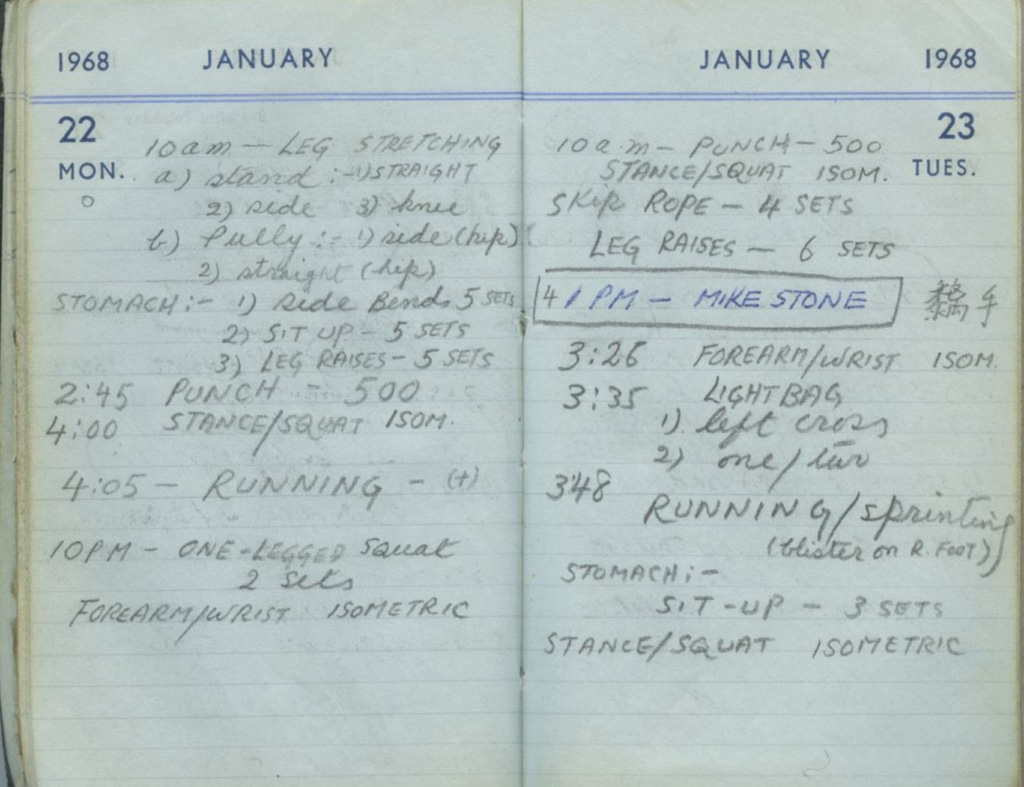 1968 JANUARY
22
MON.
10 a.m. — LEG STRETCHING
a) stand :- 1) STRAIGHT
2) side 3) knee
b) Pully :- 1) side (hip)
2) straight (hip)
STOMACH :- 1) Side Bends 5 SETS
2) SIT UP — 5 SETS
3) LEG RAISES — 5 SETS
2:45 PUNCH — 500
4:00 STANCE/SQUAT ISOM.
4:05 — RUNNING — (+)
10 PM — ONE-LEGGED Squat
2 sets
FOREARM/WRIST ISOMETRIC
JANUARY 1968
23
TUES.
10 a.m — PUNCH — 500
STANCE/SQUAT ISOM.
SKIP ROPE — 4 SETS
LEG RAISES — 6 SETS
1 PM — MIKE STONE 手
3:26 FOREARM/WRIST ISOM.
3:35 LIGHT BAG
1) left cross
2) one/two
348
RUNNING/sprinting
(blister on R. FOOT)
STOMACH :-
SIT-UP — 3 SETS
STANCE/SQUAT ISOMETRIC